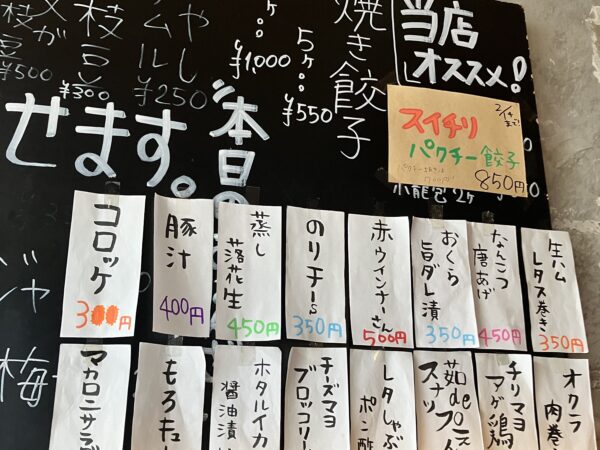 当店
オススメ!
焼き餃子
5ケ
¥550
¥1,000
枝豆
¥300
¥250
¥500
せます。
本日の
スイチリ
パクチー餃子
850円
生ハム
レタス巻き
350円
なんこつ
唐あげ
450円
おくら
旨ダレ漬
350円
赤ウインナーさん
500円
のりチーs
350円
蒸し
落花生
450円
豚汁
400円
コロッケ
300円
オクラ
肉巻
チリマヨ
マグ鶏
スナッ
レタしゃぶ
ポン酢
チーズマヨ
ブロッコリー
ホタルイカ
醤油漬
もろキュ
マカロニサラダ
梅